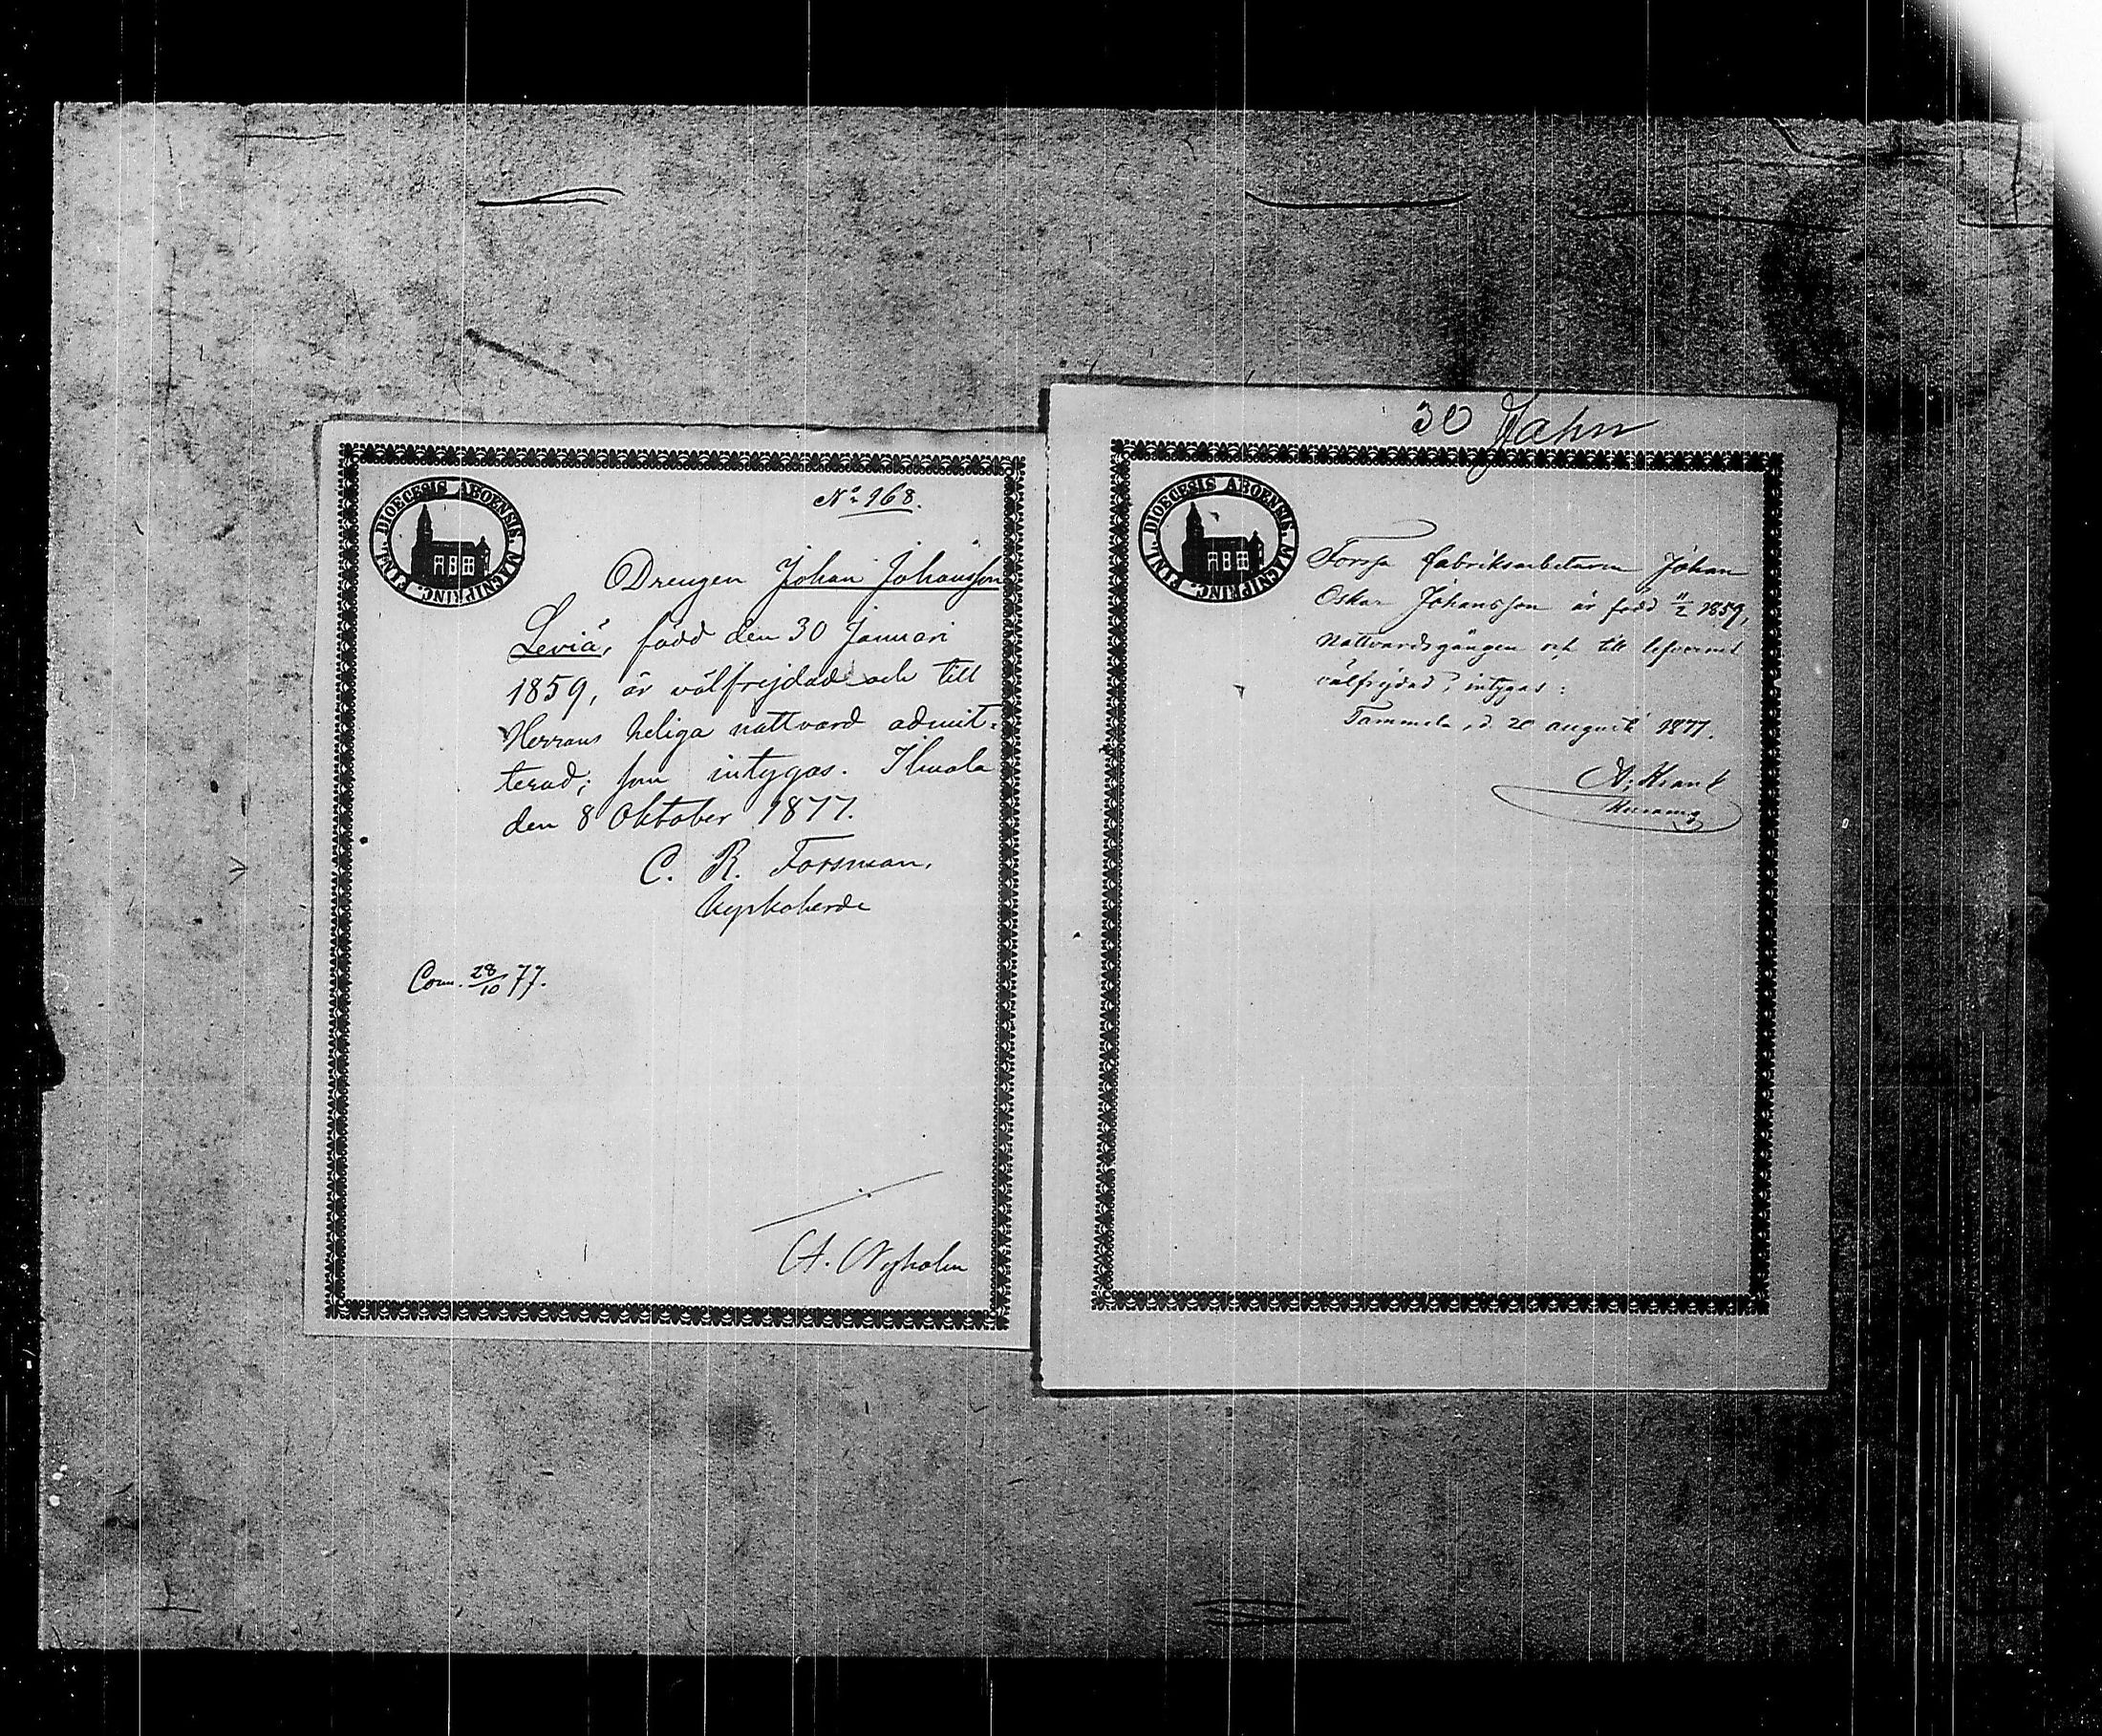 DIOECESIS ABOENSIS. MAGNI PRINC. FINL.
No 968.
Drengen Johan Johansson
Leviä, född den 30 Januari
1859, är välfrejdad och till
Herrans heliga nattvard admit-
terad; som intygas. Thuala
den 8 Oktober 1877.
C. R. Forsman.
Kyrkoherde
Com. 28/10 77.
A. Nyholm
30 Jahn
DIOECESIS ABOENSIS. MAGNI PRINC. FINL.
Forssa fabriksarbetaren Johan
Oskar Johansson är född 11/2 1859,
nattvardsgången och till lefvernet
välfrejdad, intygas:
Tammela, d. 20 augusti 1877.